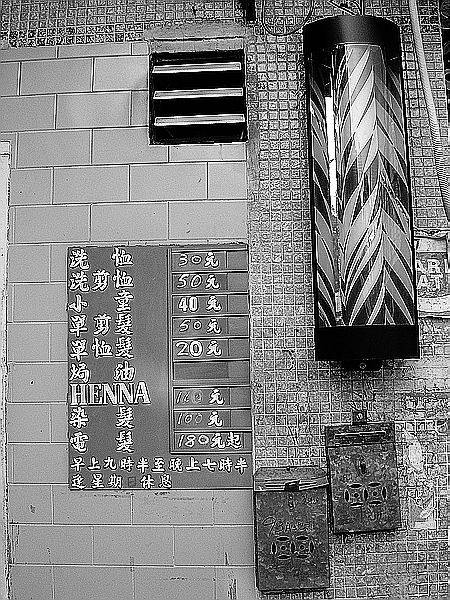 洗 恤 30元
洗剪恤 50元
小 童 40元
單剪髮 50元
單恤髮 20元
焗 油
HENNA 110元
染 髮 100元
電 髮 180元起
早上九時半至晚上七時半
逢星期日休息